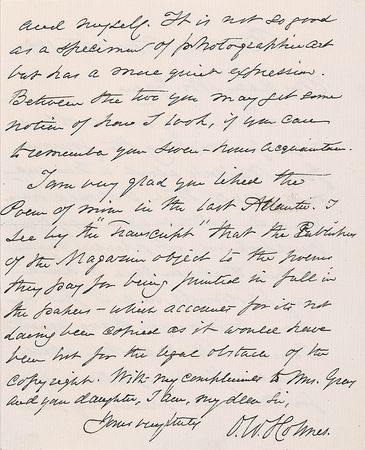 and myself. It is not so good
as a specimen of photographic art
but has a more quiet expression.
Between the two you may get some
notion of how I look, if you care
to remember your seven-hours acquaintance.
I am very glad you liked the
Poem of mine in the last Atlantic. I
see by the "Transcript" that the Publishers
of the Magazine object to the poems
they pay for being printed in full in
the papers – which accounts for its not
having been copied as it would have
been but for the legal obstacle of the
copyright. With my compliments to Mrs. Gray
and your daughter, I am, my dear Sir,
Yours very truly
O. W. Holmes.